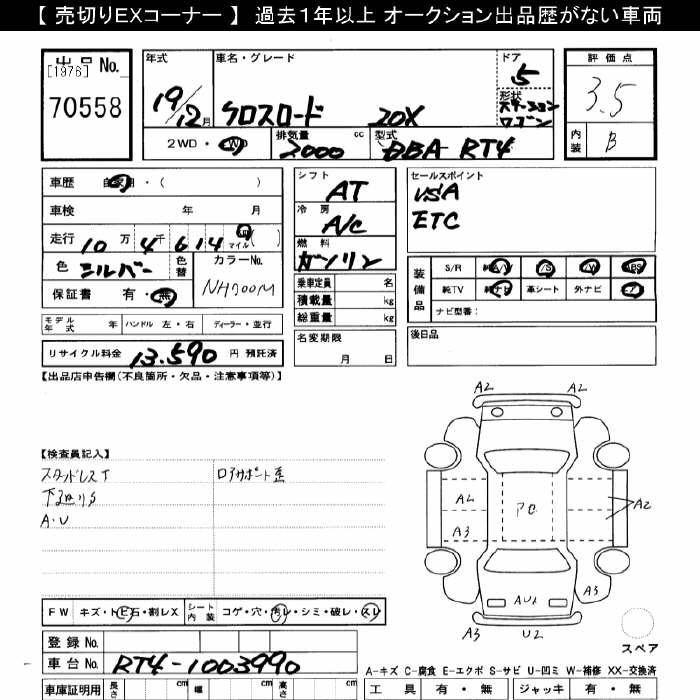 【 売切りEXコーナー 】 過去1年以上 オークション出品歴がない車両
出品 No.
[1976]
70558
年式
19/12月
車名・グレード
クロスロード 20X
ドア
5
形状
ステーションワゴン
評価点
3.5
内装
B
2WD・4WD
排気量 cc
2000
型式
DBA-RT4
車歴 自家用・( )
車検 年 月
走行 10万4千614 km マイル ( )
色 シルバー 色替
カラーNo.
NH700M
保証書 有・無
モデル年式 年 ハンドル 左・右 ディーラー・並行
リサイクル料金 13.590 円 預託済
シフト
AT
冷房
A/C
燃料
ガソリン
乗車定員 名
積載量 kg
総重量 kg
名変期限
月 日
セールスポイント
USA
ETC
装備品
S/R 純A/W P/S P/W ABS
純TV 純ナビ 革シート 外ナビ エアB
ナビ型番:
後日品
【出品店申告欄(不良箇所・欠品・注意事項等)】
【検査員記入】
スタッドレスT
下廻りS
A・U
ロアサポート歪
A2 A2
A2
A3
PC
A2
AU1
A3 U2 A3
スペア
FW キズ・トビ石・割レX シート内装 コゲ・穴・汚レ・シミ・破レ・スレ
登録 No.
車台 No. RT4-1003990
車庫証明用 長さ cm 幅 cm 高さ cm
A-キズ C-腐食 E-エクボ S-サビ U-凹ミ W-補修 XX-交換済
工具 有・無 ジャッキ 有・無